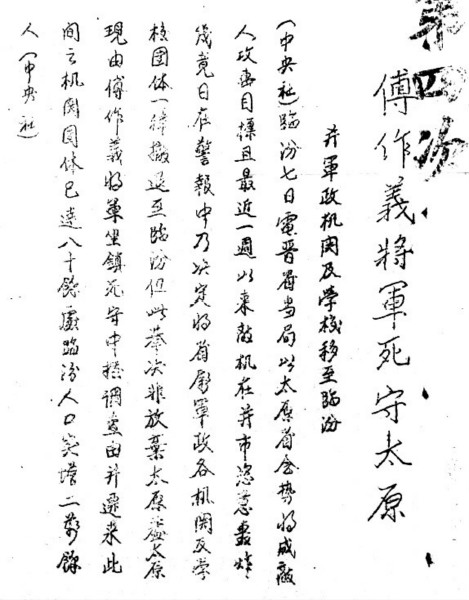 第四份
傅作義將軍死守太原
并軍政机関及学校移至臨汾
(中央社)臨汾七日電晋省当局以太原省会势将成敵
人攻击目標且最近一週以来敵机在并市恣意轟炸
幾竟日在警報中乃决定将省府軍政各机関及学
校团体一律撤退至臨汾但此举决非放棄太原盖太原
現由傅作義将軍坐鎮死守中据調查由并遷来此
間之机関团体已達八十餘處臨汾人口突增二萬餘
人(中央社)